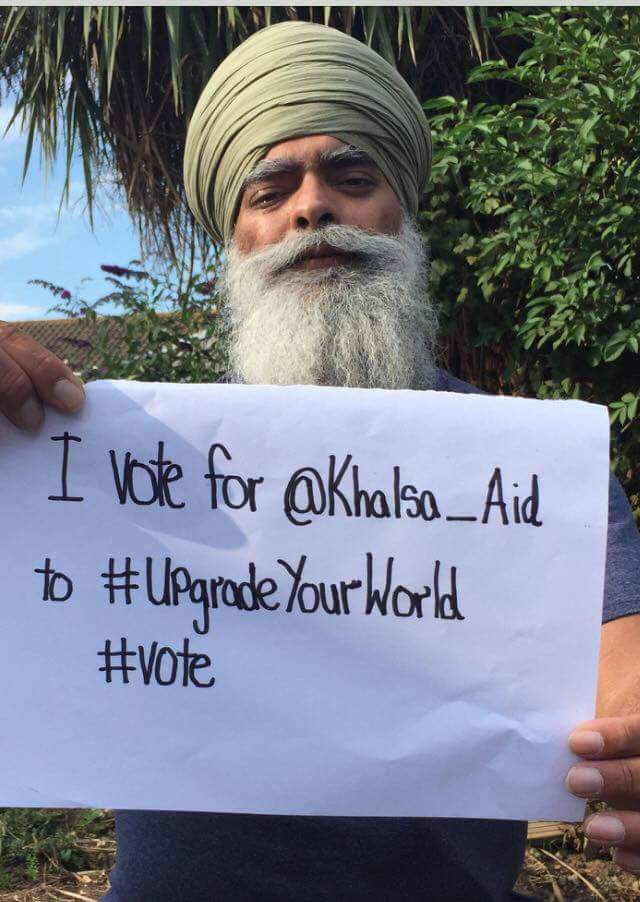 I vote for @Khalsa_Aid
to #UpgradeYourWorld
#vote